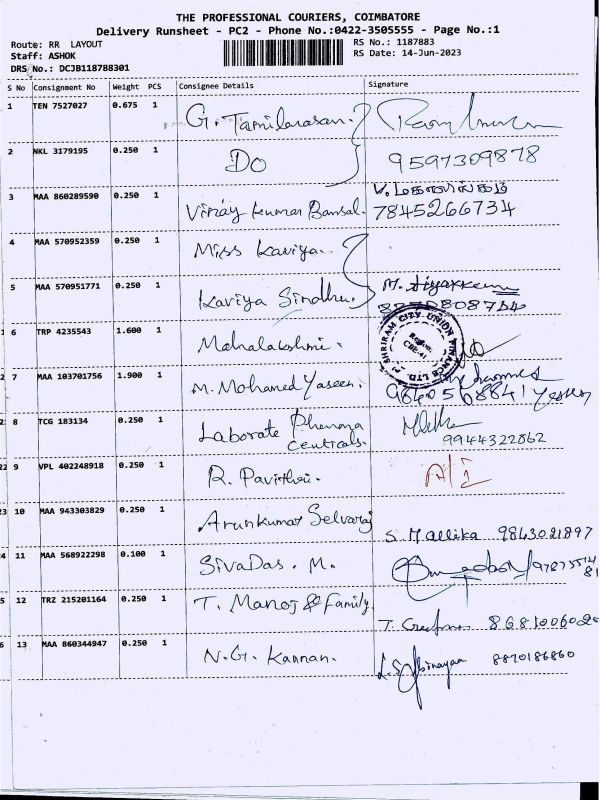 THE PROFESSIONAL COURIERS, COIMBATORE
Delivery Runsheet - PC2 - Phone No.:0422-3505555 - Page No.:1
Route: RR LAYOUT RS No.: 1187883
Staff: ASHOK RS Date: 14-Jun-2023
DRS No.: DCJB118788301
S No Consignment No Weight PCS Consignee Details Signature
1 TEN 7527027 0.675 1 G. Tamilarasan.
2 NKL 3179195 0.250 1 Do 9597309878
3 MAA 860289590 0.250 1 Vinay Kumar Bansal. 7845266734
4 MAA 570952359 0.250 1 Miss Kaviya.
5 MAA 570951771 0.250 1 Kaviya Sindhu.
6 TRP 4235543 1.600 1 Mahalakshmi. SHRIRAM CITY UNION FINANCE LTD.
7 MAA 103701756 1.900 1 M. Mohamed Yaseen. 9840568841
8 TCG 183134 0.250 1 Laborate Pharma
ceuticals. 9944322862
9 VPL 402248918 0.250 1 R. Pavithra.
10 MAA 943303829 0.250 1 Arunkumar Selvaraj S. Mallika 9843021897
11 MAA 568922298 0.100 1 SivaDas. M.
12 TRZ 215201164 0.250 1 T. Manoj & Family.
13 MAA 860344947 0.250 1 N.G. Kannan. 8870186860